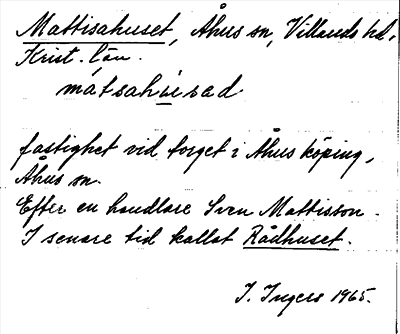 Mattisahuset, Åhus sn, Villands hd,
Krist. län.
mátsahùsad
fastighet vid torget i Åhus köping,
Åhus sn.
Efter en handlare Sven Mattisson.
I senare tid kallat Rådhuset.
I. Ingers 1965.